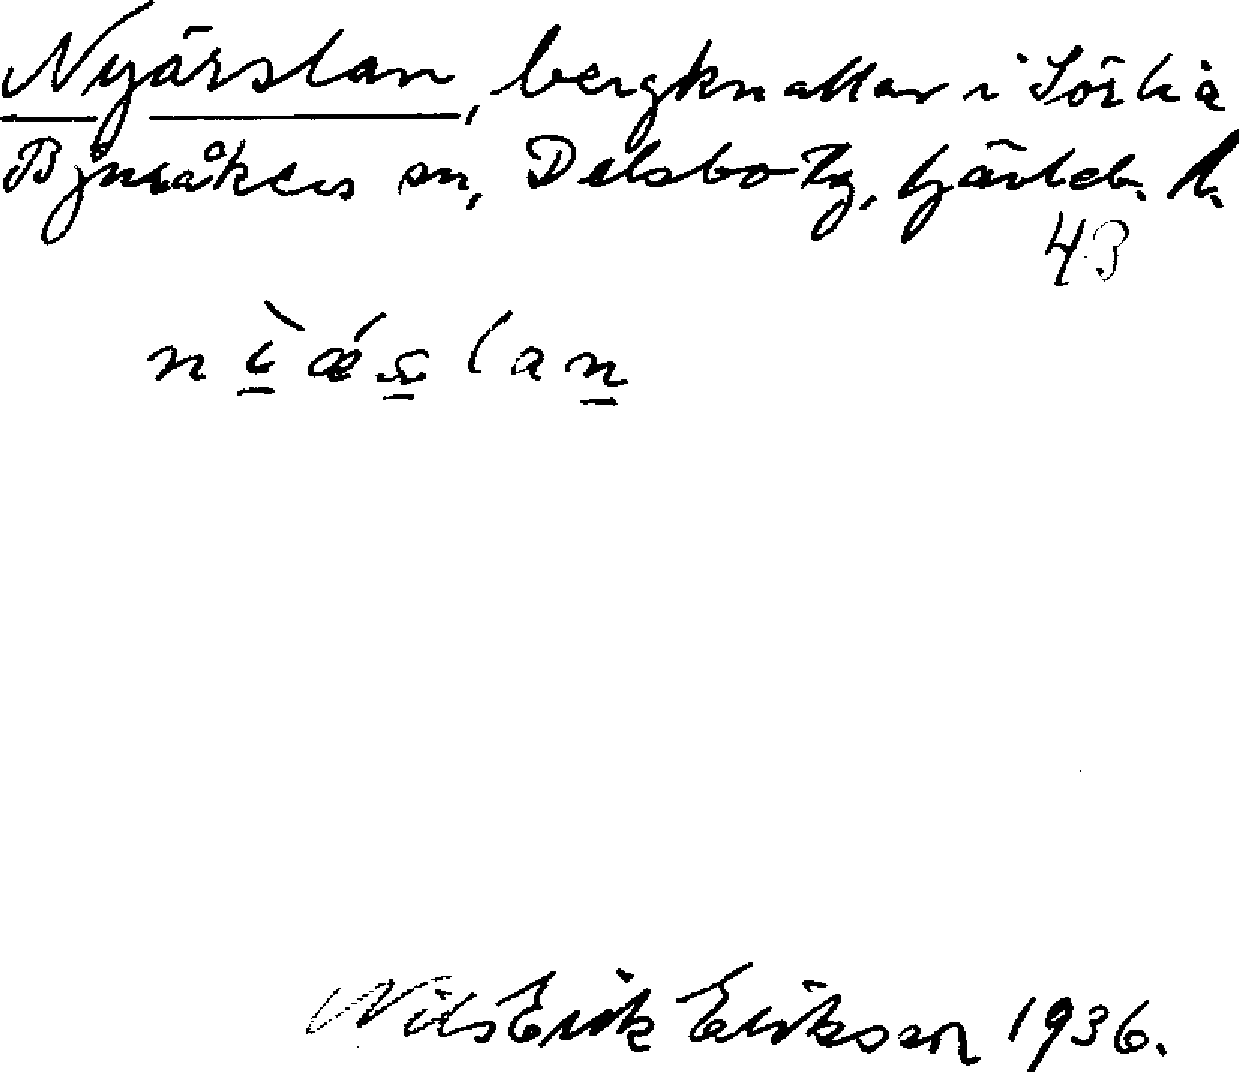 Nyårslan, bergknallar i Sörliå
Bjuråkers sn, Delsbo tg, Gävleb. l.
43
Nils Erik Eriksson 1936.